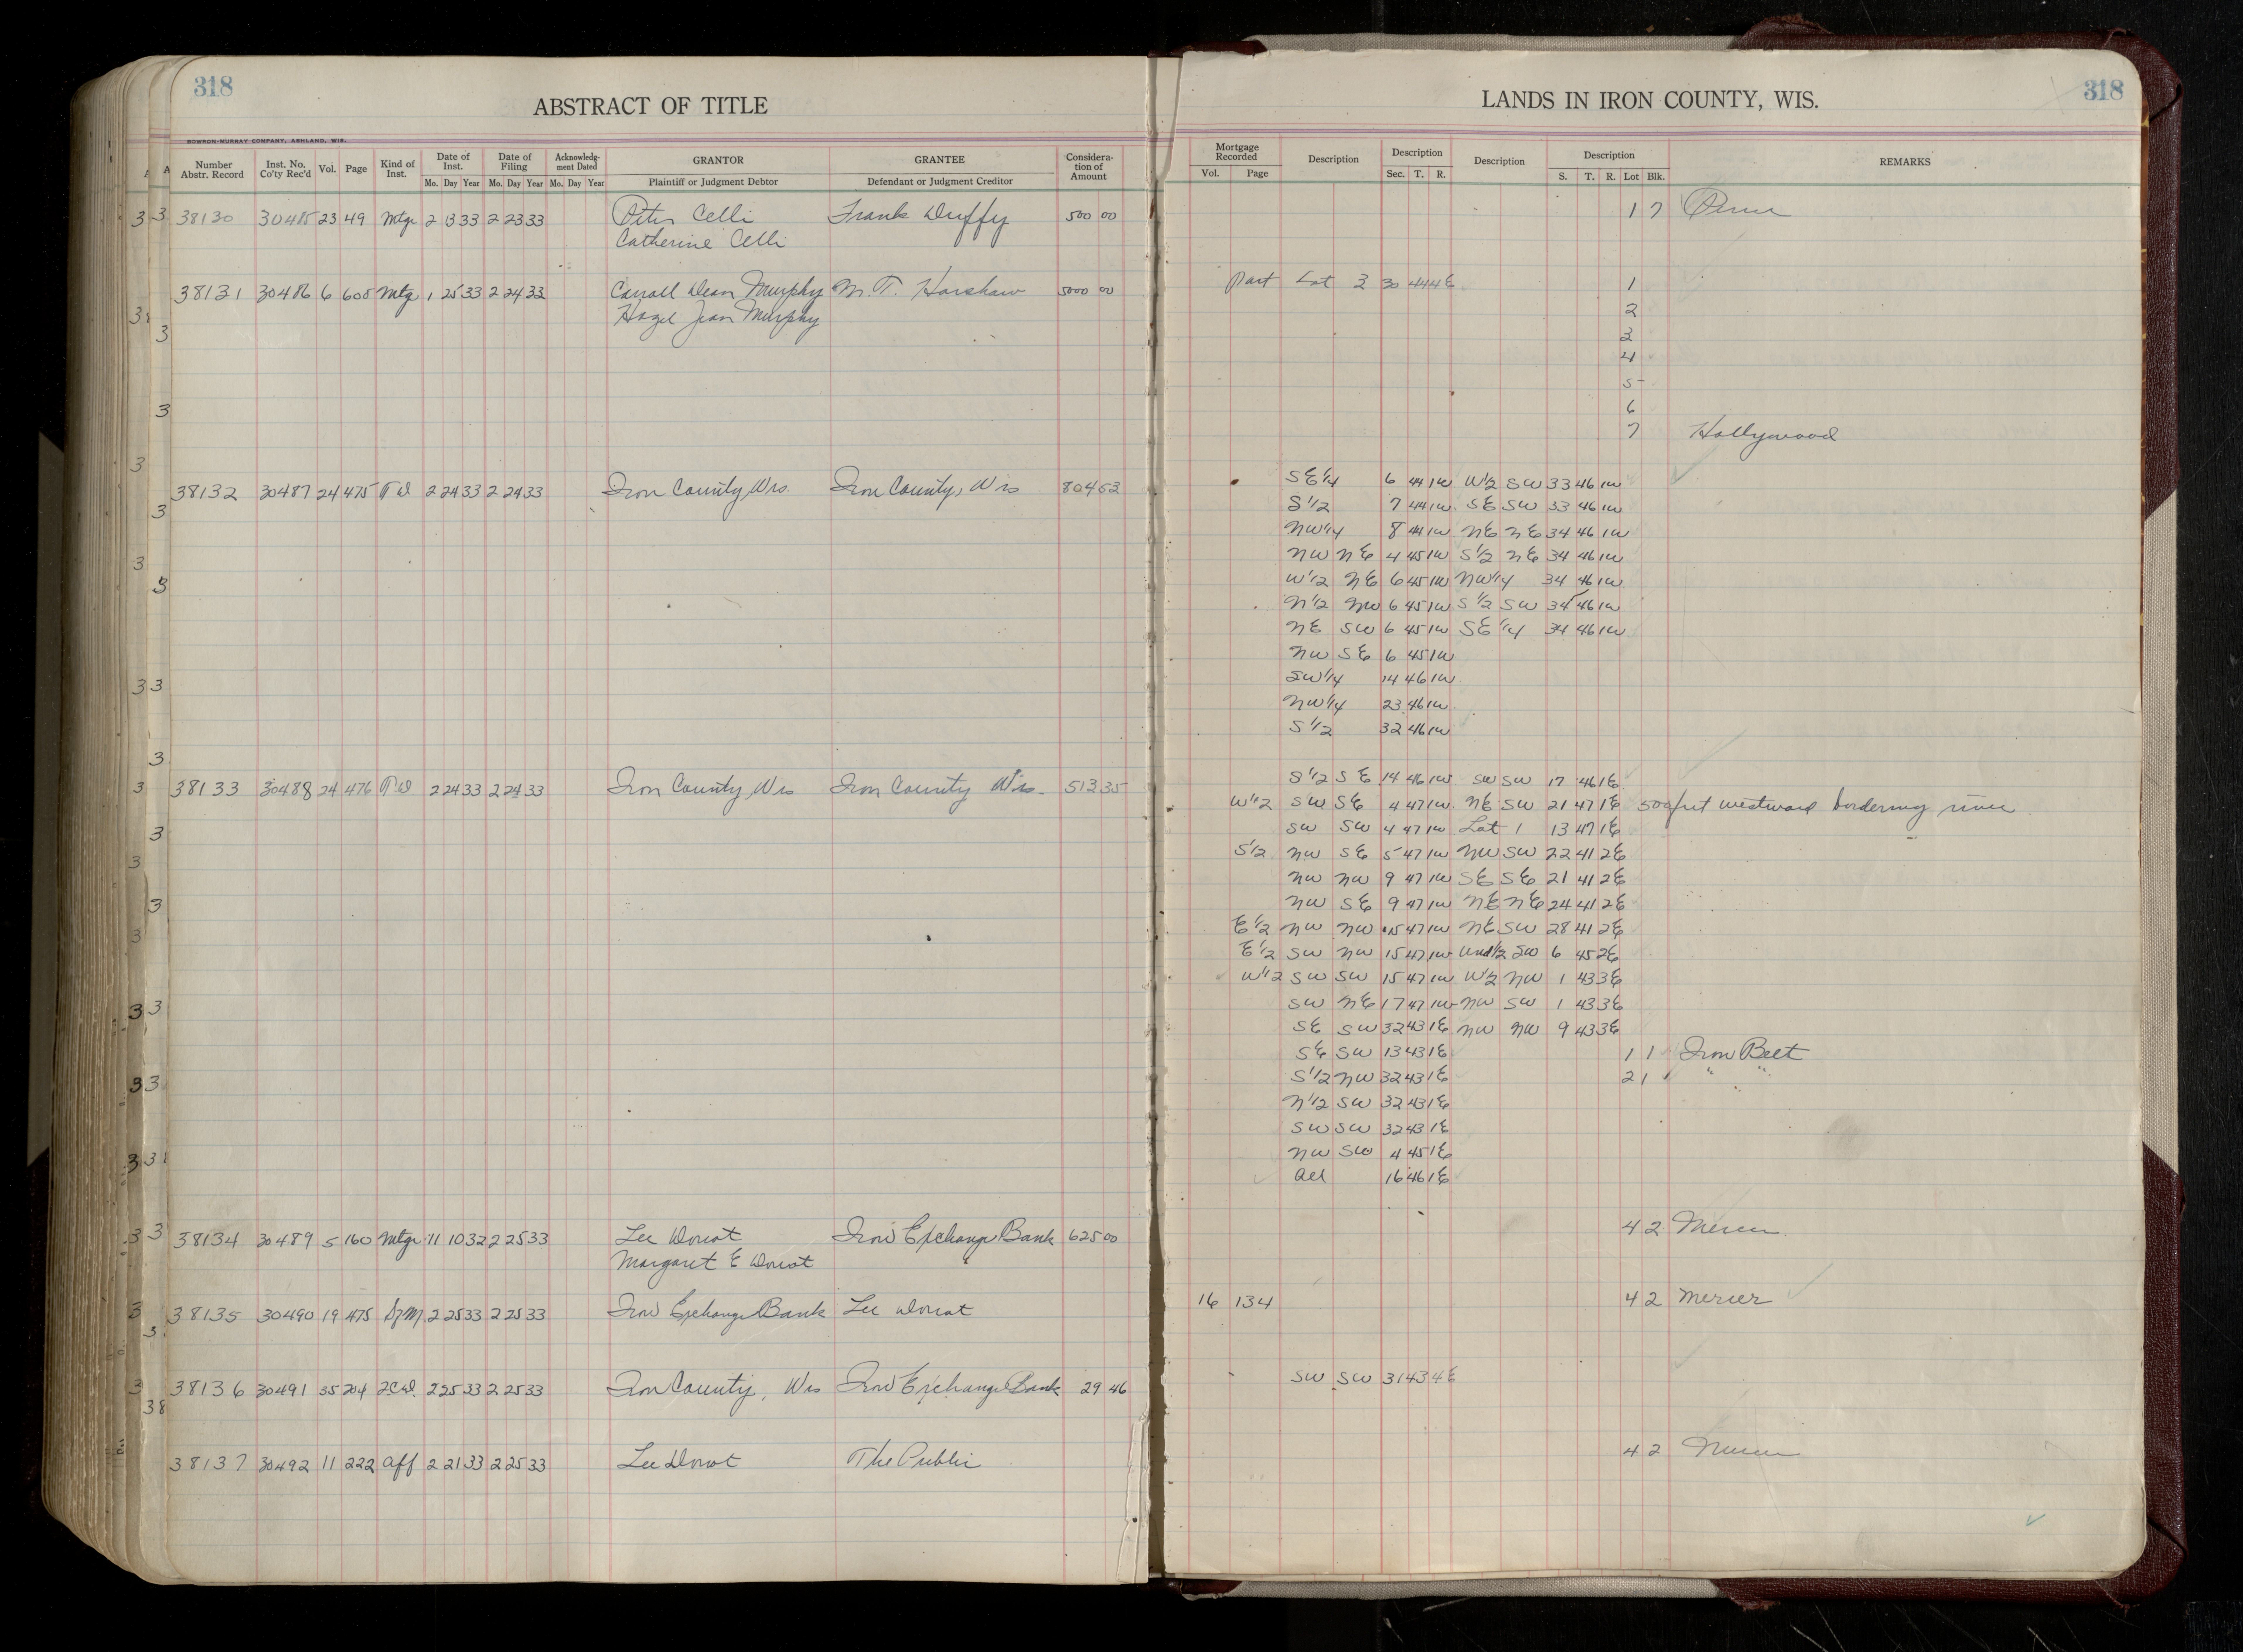 318
ABSTRACT OF TITLE
BOWRON-MURRAY COMPANY, ASHLAND, WIS.
Number Abstr. Record Inst. No. Co'ty Rec'd Vol. Page Kind of Inst. Date of Inst. Date of Filing Acknowledg-ment Dated GRANTOR GRANTEE Considera-tion of Amount
Mo. Day Year Mo. Day Year Mo. Day Year Plaintiff or Judgment Debtor Defendant or Judgment Creditor
38130 30485 23 49 Mtge 2 13 33 2 23 33 Peter Celli Frank Duffy 500 00
Catherine Celli
38131 30486 6 608 Mtge 1 25 33 2 24 33 Carroll Dean Murphy M. T. Harshaw 5000 00
Hazel Jean Murphy
38132 30487 24 475 T D 2 24 33 2 24 33 Iron County, Wis. Iron County, Wis 804 62
38133 30488 24 476 T D 2 24 33 2 24 33 Iron County, Wis Iron County Wis. 513 35
38134 30489 5 160 Mtge 11 10 32 2 25 33 Lee Donat Iron Exchange Bank 625 00
Margaret E Donat
38135 30490 19 475 S/M 2 25 33 2 25 33 Iron Exchange Bank Lee Donat
38136 30491 35 204 2 25 33 2 25 33 Iron County, Wis Iron Exchange Bank 29 46
38137 30492 11 222 Aff 2 21 33 2 25 33 Lee Donat The Public
LANDS IN IRON COUNTY, WIS.
318
Mortgage Recorded Description Description Description Description REMARKS
Vol. Page Sec. T. R. S. T. R. Lot Blk.
1 7
Part Lot 3 30 44 4E 1
2
3
4
5
6
7 Hollywood
SE 1/4 6 44 1W W 1/2 SW 33 46 1W
S 1/2 7 44 1W SE SW 33 46 1W
NW 1/4 8 44 1W NE NE 34 46 1W
NW NE 4 45 1W S 1/2 NE 34 46 1W
W 1/2 NE 6 45 1W NW 1/4 34 46 1W
N 1/2 NW 6 45 1W S 1/2 SW 34 46 1W
NE SW 6 45 1W SE 1/4 34 46 1W
NW SE 6 45 1W
SW 1/4 14 46 1W
NW 1/4 23 46 1W
S 1/2 32 46 1W
S 1/2 SE 14 46 1W SW SW 17 46 1E
W 1/2 SW SE 4 47 1W NE SW 21 47 1E 500 feet westward bordering river
SW SW 4 47 1W Lot 1 13 47 1E
S 1/2 NW SE 5 47 1W NW SW 22 41 2E
NW NW 9 47 1W SE SE 21 41 2E
NW SE 9 47 1W NE NE 24 41 2E
E 1/2 NW NW 15 47 1W NE SW 28 41 2E
E 1/2 SW NW 15 47 1W Und 1/2 SW 6 45 2E
W 1/2 SW SW 15 47 1W W 1/2 NW 1 43 3E
SW NE 17 47 1W NW SW 1 43 3E
SE SW 32 43 1E NW NW 9 43 3E
SE SW 13 43 1E 1 1 Iron Belt
S 1/2 NW 32 43 1E 2 1 " "
N 1/2 SW 32 43 1E
SW SW 32 43 1E
NW SW 4 45 1E
All 16 46 1E
4 2 Mercer
16 134 4 2 Mercer
SW SW 31 43 4E
4 2 Mercer